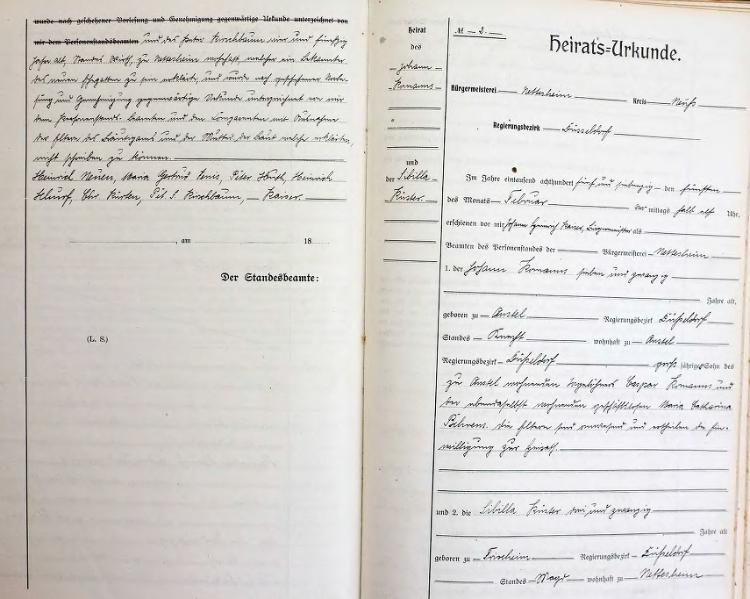 wurde nach geschehener Vorlesung und Genehmigung gegenwärtige Urkunde unterzeichnet von
mir dem Personenstandsbeamten und des Peter Kirschbaum vier und fünfzig
Jahre alt, Standes Wirth, zu Nettesheim wohnhaft welcher ein Bekannter
des neuen Ehegatten zu sein erklärte, und wurde nach geschehener Vorle-
sung und Genehmigung gegenwärtige Urkunde unterzeichnet von mir
dem Personenstands-Beamten und den Comparenten mit Ausnahme
der Eltern des Bräutigams und der Mutter der Braut welche erklärten,
nicht schreiben zu können.
Heinrich Maria Gertrud Peter Heinrich
Kirschbaum, Kaiser.
, am 18
Der Standesbeamte:
(L. S.)
Heirat
des
Johann
Romanns
und
der Sibilla
Küster.
№ 2.
Heirats-Urkunde.
Bürgermeisterei Nettesheim Kreis Neuß
Regierungsbezirk Düsseldorf
Im Jahre eintausend achthundert fünf und siebenzig den fünften
des Monats Februar mittags halb elf Uhr,
erschienen vor mir Johann Heinrich Kaiser, Bürgermeister als
Beamten des Personenstands der Bürgermeisterei Nettesheim
1. der Johann Romanns sieben und zwanzig
Jahre alt,
geboren zu Anstel Regierungsbezirk Düsseldorf
Standes Knecht wohnhaft zu Anstel
Regierungsbezirk Düsseldorf groß jähriger Sohn des
zu Anstel wohnenden Tagelöhners Caspar Romanns und
der ebendaselbst wohnenden geschäftslosen Maria Catharina
Die Eltern sind anwesend und ertheilen die Ein-
willigung zur Heirath.
und 2. die Sibilla Küster drei und zwanzig
Jahre alt
geboren zu Frixheim Regierungsbezirk Düsseldorf
Standes Magd wohnhaft zu Nettesheim